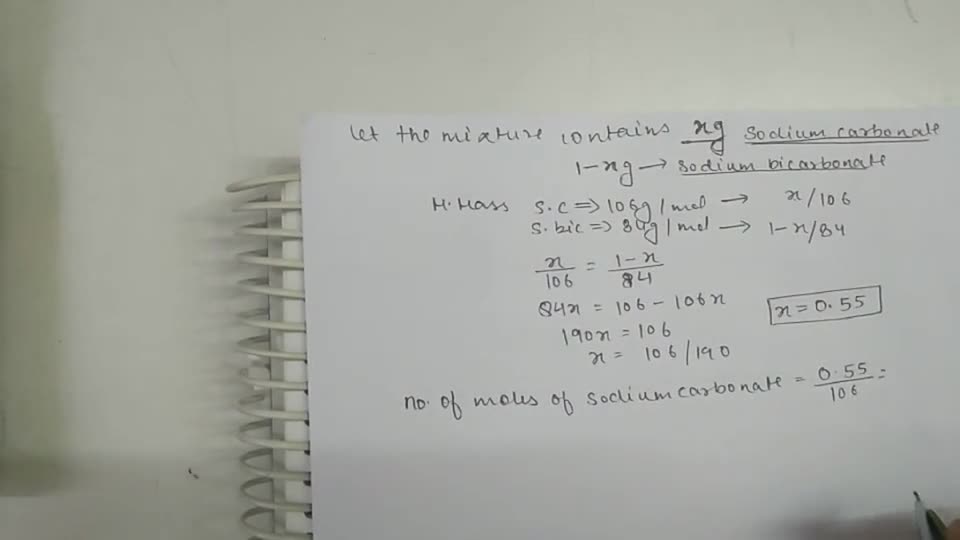 let the mixture contains xg sodium carbonate
1-xg → sodium bicarbonate
M. Mass s.c ⇒ 106g/mol → x/106
s. bic ⇒ 84g/mol → 1-x/84
x/106 = 1-x/84
84x = 106 - 106x
x = 0.55
190x = 106
x = 106/190
no. of moles of sodium carbonate = 0.55/106 =